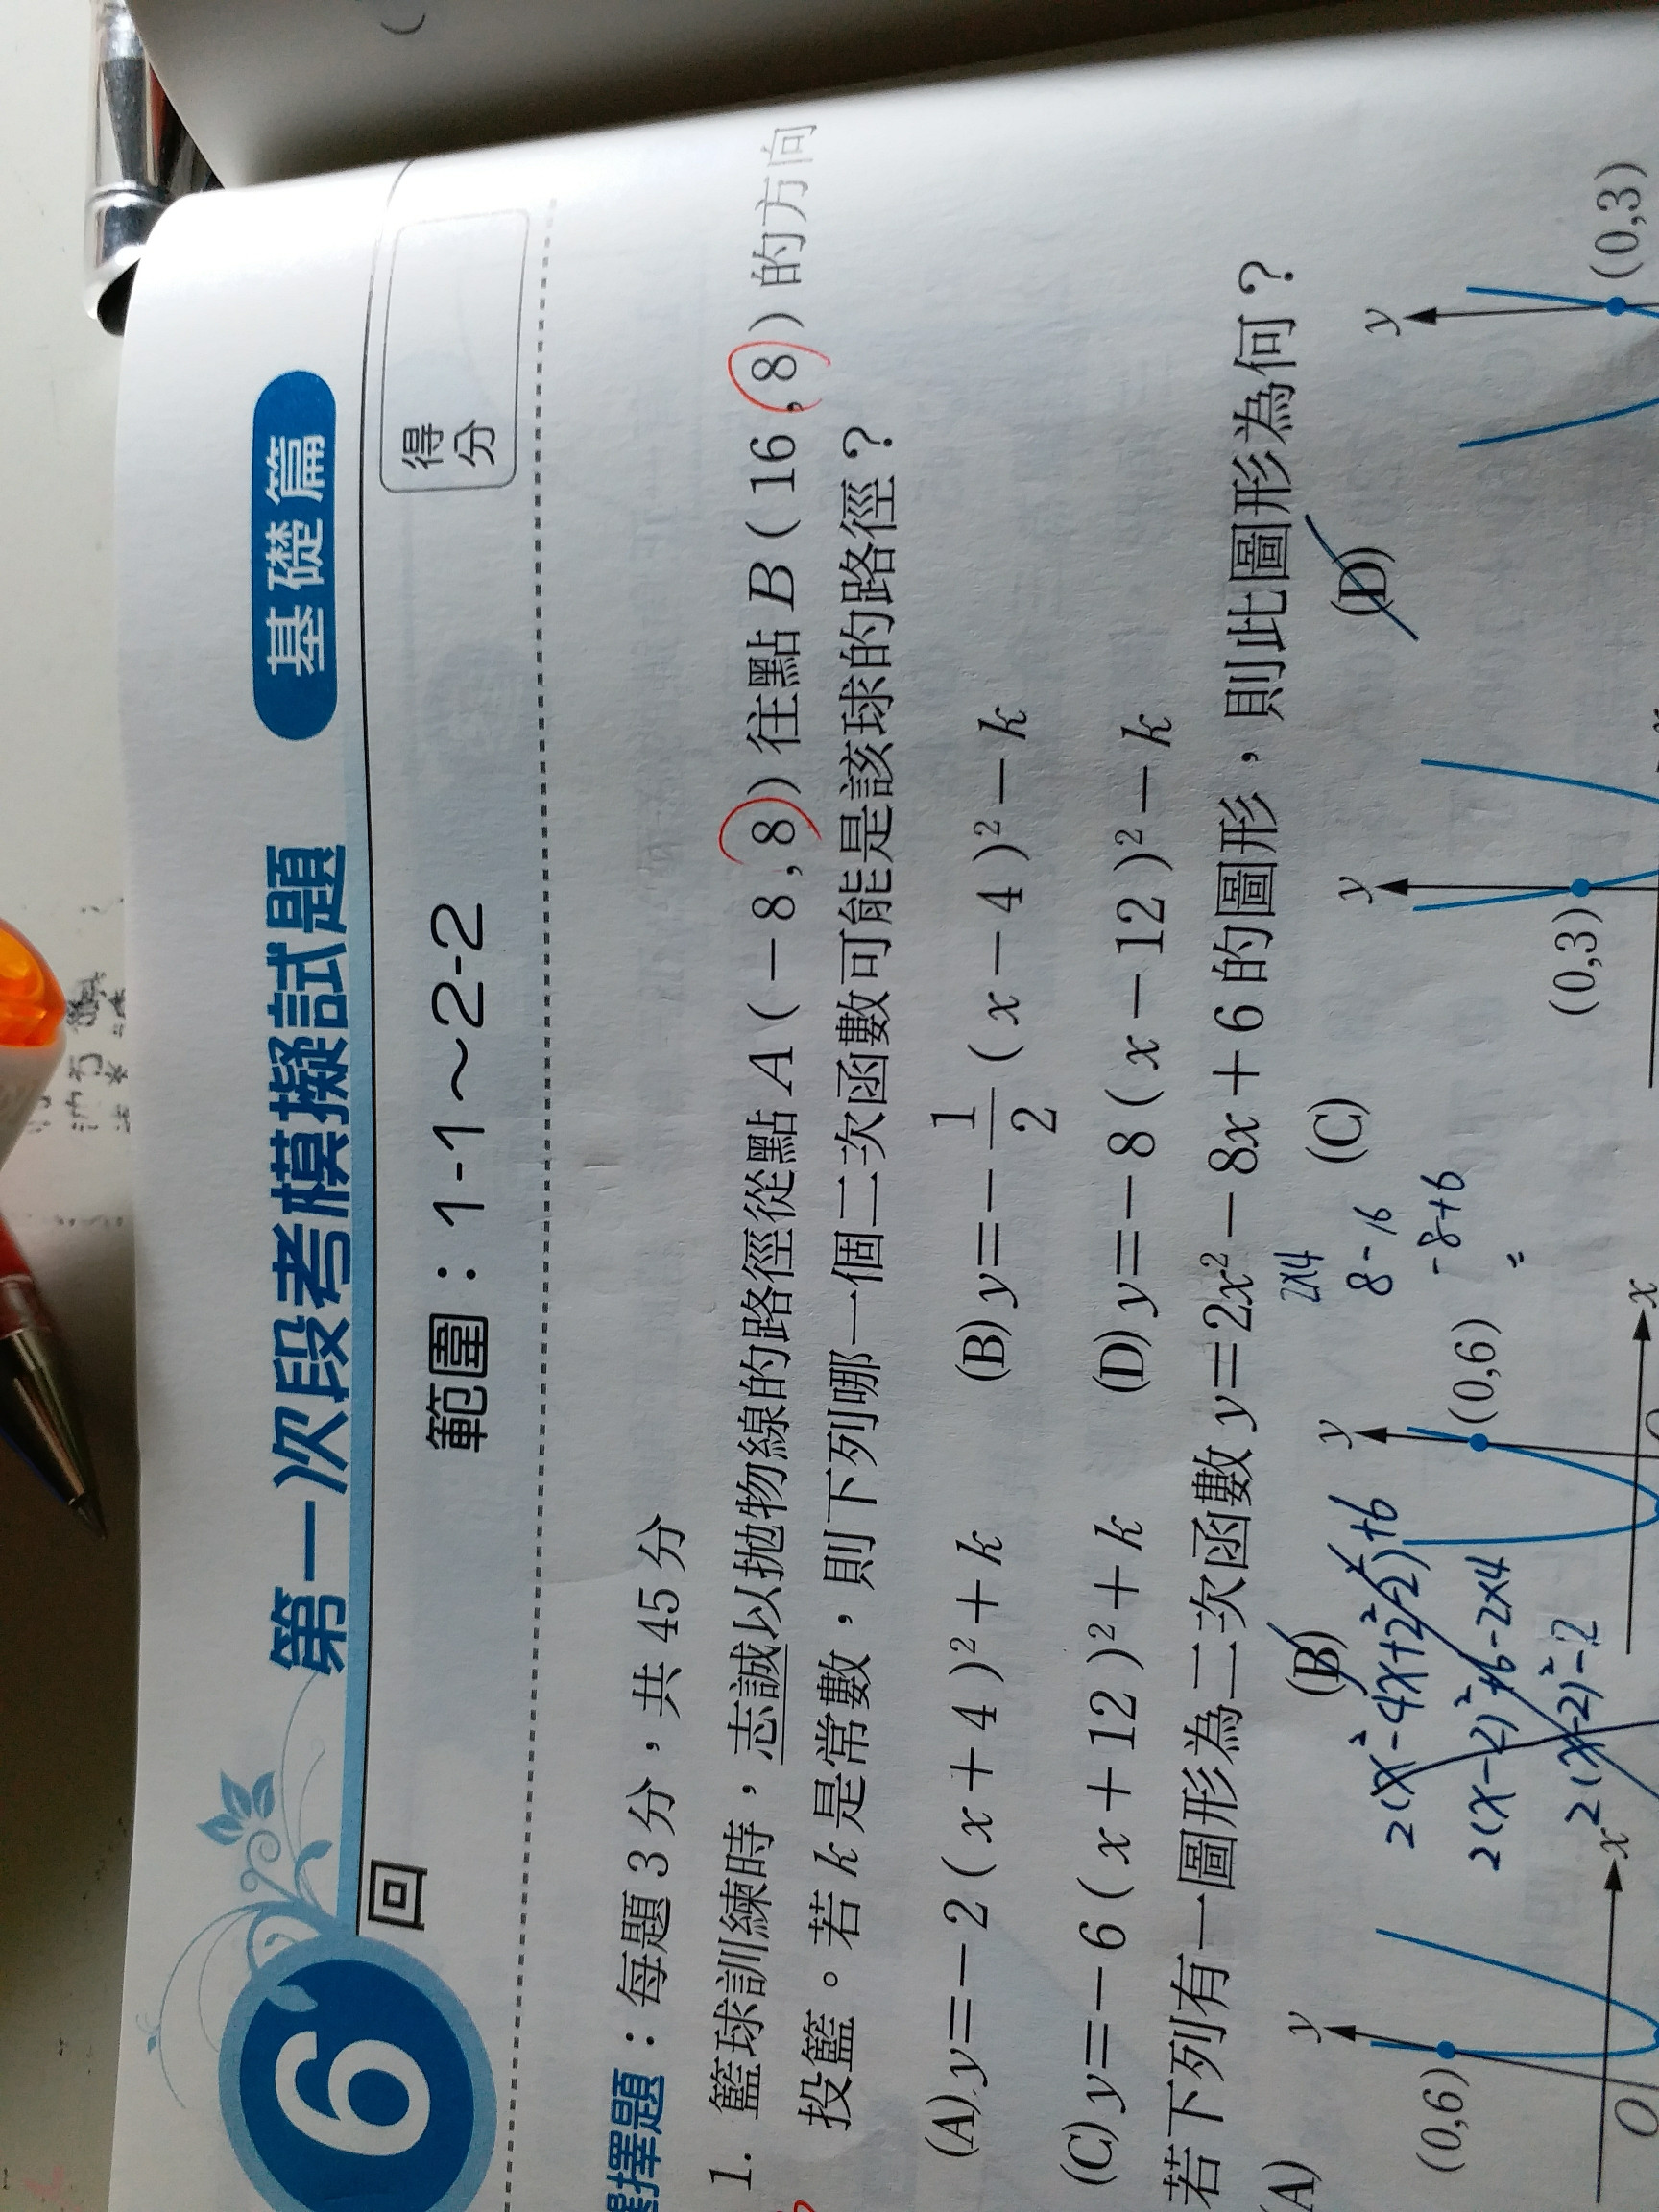 6
回
第一次段考模擬試題
基礎篇
範圍：1-1～2-2
得分
擇題：每題 3 分，共 45 分
1. 籃球訓練時，志誠以拋物線的路徑從點 A (－8 , 8) 往點 B (16 , 8) 的方向
投籃。若 k 是常數，則下列哪一個二次函數可能是該球的路徑？
(A) y＝－2 (x＋4)²＋k
(B) y＝－1/2 (x－4)²－k
(C) y＝－6 (x＋12)²＋k
(D) y＝－8 (x－12)²－k
若下列有一圖形為二次函數 y＝2x²－8x＋6 的圖形，則此圖形為何？
(A)
(B)
(C)
(D)
2(x²-4x+2²-2²)+6
2(x-2)²+6-2x4
2(x-2)²-2
2x4
8-16
-8+6
=
y
(0,6)
x
O
y
(0,6)
x
y
(0,3)
y
(0,3)